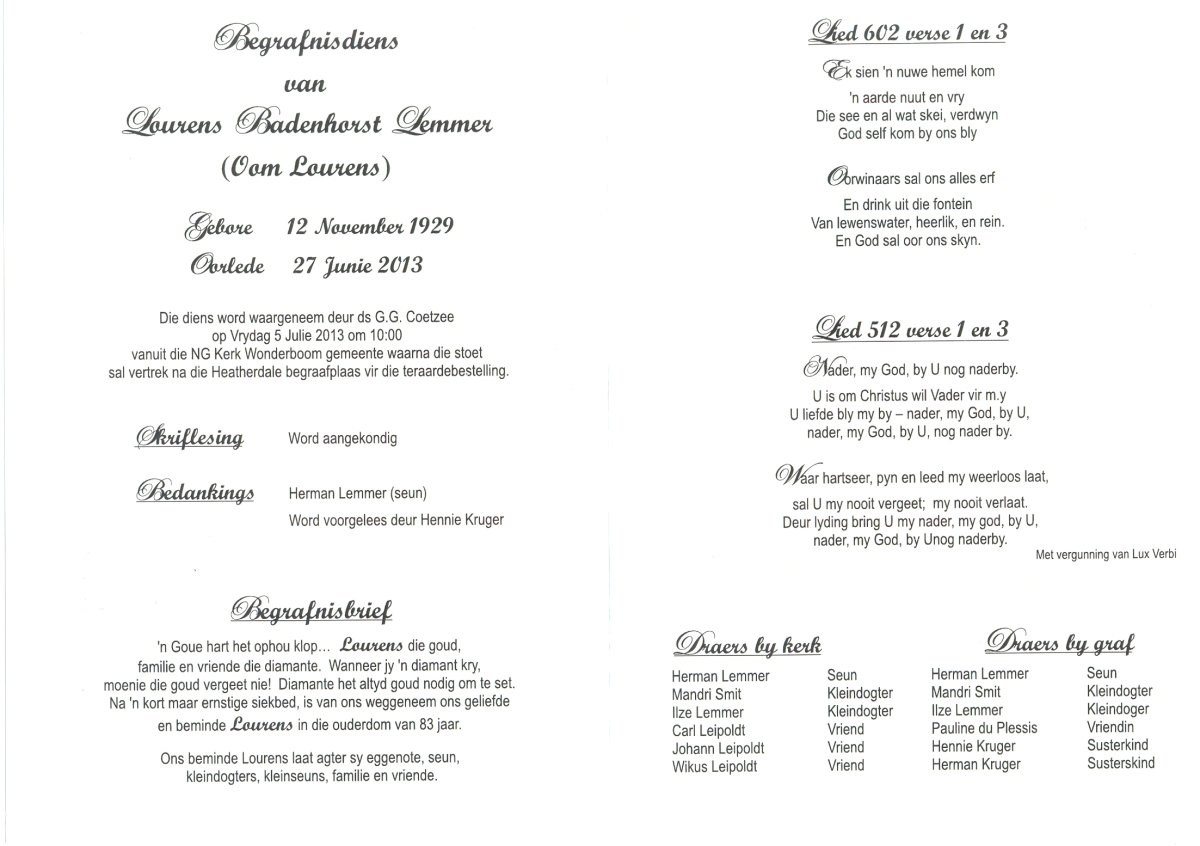 Begrafnisdiens
van
Lourens Badenhorst Lemmer
(Oom Lourens)
Gebore 12 November 1929
Oorlede 27 Junie 2013
Die diens word waargeneem deur ds G.G. Coetzee
op Vrydag 5 Julie 2013 om 10:00
vanuit die NG Kerk Wonderboom gemeente waarna die stoet
sal vertrek na die Heatherdale begraafplaas vir die teraardebestelling.
Skriflesing Word aangekondig
Bedankings Herman Lemmer (seun)
Word voorgelees deur Hennie Kruger
Begrafnisbrief
'n Goue hart het ophou klop... Lourens die goud,
familie en vriende die diamante. Wanneer jy 'n diamant kry,
moenie die goud vergeet nie! Diamante het altyd goud nodig om te set.
Na 'n kort maar ernstige siekbed, is van ons weggeneem ons geliefde
en beminde Lourens in die ouderdom van 83 jaar.
Ons beminde Lourens laat agter sy eggenote, seun,
kleindogters, kleinseuns, familie en vriende.
Lied 602 verse 1 en 3
Ek sien 'n nuwe hemel kom
'n aarde nuut en vry
Die see en al wat skei, verdwyn
God self kom by ons bly
Oorwinaars sal ons alles erf
En drink uit die fontein
Van lewenswater, heerlik, en rein.
En God sal oor ons skyn.
Lied 512 verse 1 en 3
Nader, my God, by U nog naderby.
U is om Christus wil Vader vir m.y
U liefde bly my by – nader, my God, by U,
nader, my God, by U, nog nader by.
Waar hartseer, pyn en leed my weerloos laat,
sal U my nooit vergeet; my nooit verlaat.
Deur lyding bring U my nader, my god, by U,
nader, my God, by Unog naderby.
Met vergunning van Lux Verbi
Draers by kerk
Herman Lemmer Seun
Mandri Smit Kleindogter
Ilze Lemmer Kleindogter
Carl Leipoldt Vriend
Johann Leipoldt Vriend
Wikus Leipoldt Vriend
Draers by graf
Herman Lemmer Seun
Mandri Smit Kleindogter
Ilze Lemmer Kleindoger
Pauline du Plessis Vriendin
Hennie Kruger Susterkind
Herman Kruger Susterskind